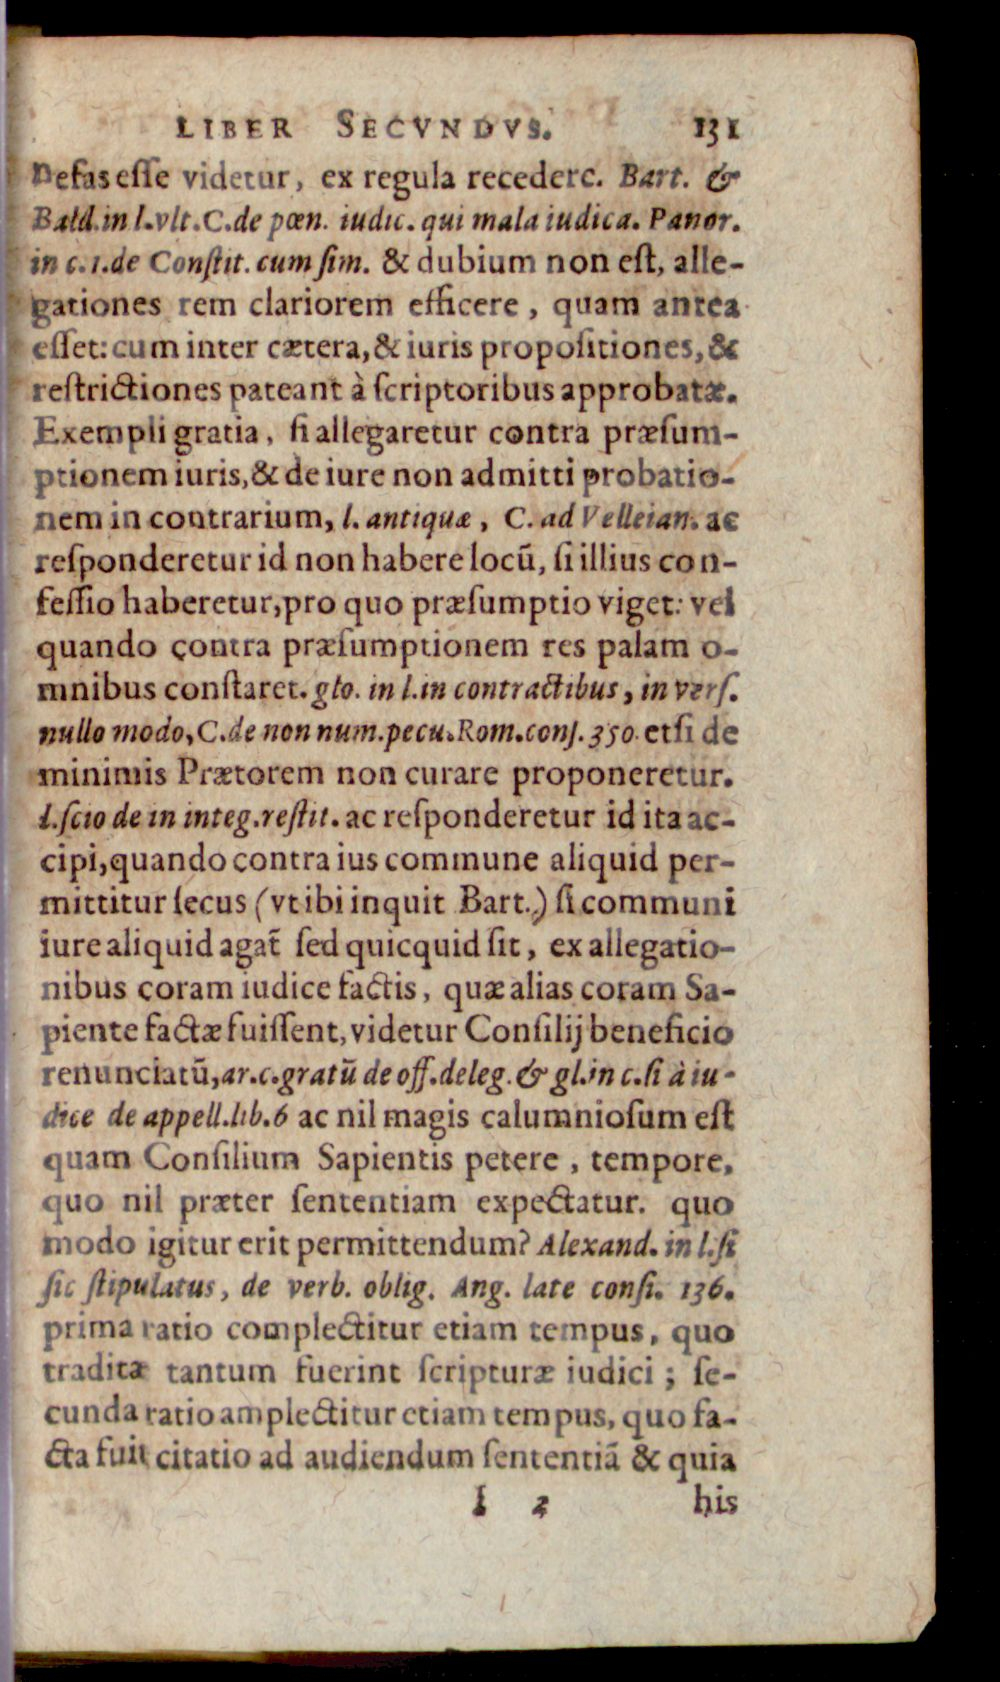 LIBER SECVNDVS. 131
nefas esse videtur, ex regula recedere. Bart. &
Bald. in l. vlt. C. de pœn. iudic. qui mala iudica. Panor.
in c. 1. de Constit. cum sim. & dubium non est, alle-
gationes rem clariorem efficere, quam antea
esset: cum inter cætera, & iuris propositiones, &
restrictiones pateant à scriptoribus approbatæ.
Exempli gratia, si allegaretur contra præsum-
ptionem iuris, & de iure non admitti probatio-
nem in contrarium, l. antiquæ, C. ad Velleian. ac
responderetur id non habere locū, si illius con-
fessio haberetur, pro quo præsumptio viget: vel
quando contra præsumptionem res palam o-
mnibus constaret. glo. in l. in contractibus, in vers.
nullo modo, C. de non num. pecu. Rom. cons. 350. etsi de
minimis Prætorem non curare proponeretur.
l. scio de in integ. restit. ac responderetur id ita ac-
cipi, quando contra ius commune aliquid per-
mittitur secus (vt ibi inquit Bart.) si communi
iure aliquid agat̃ sed quicquid sit, ex allegatio-
nibus coram iudice factis, quæ alias coram Sa-
piente factæ fuissent, videtur Consilij beneficio
renunciatū, ar. c. gratū de off. deleg. & gl. in c. si à iu-
dice de appell. lib. 6 ac nil magis calumniosum est
quam Consilium Sapientis petere, tempore,
quo nil præter sententiam expectatur. quo
modo igitur erit permittendum? Alexand. in l. si
sic stipulatus, de verb. oblig. Ang. late consi. 136.
prima ratio complectitur etiam tempus, quo
traditæ tantum fuerint scripturæ iudici; se-
cunda ratio amplectitur etiam tempus, quo fa-
cta fuit citatio ad audiendum sententiā & quia
I 2 his